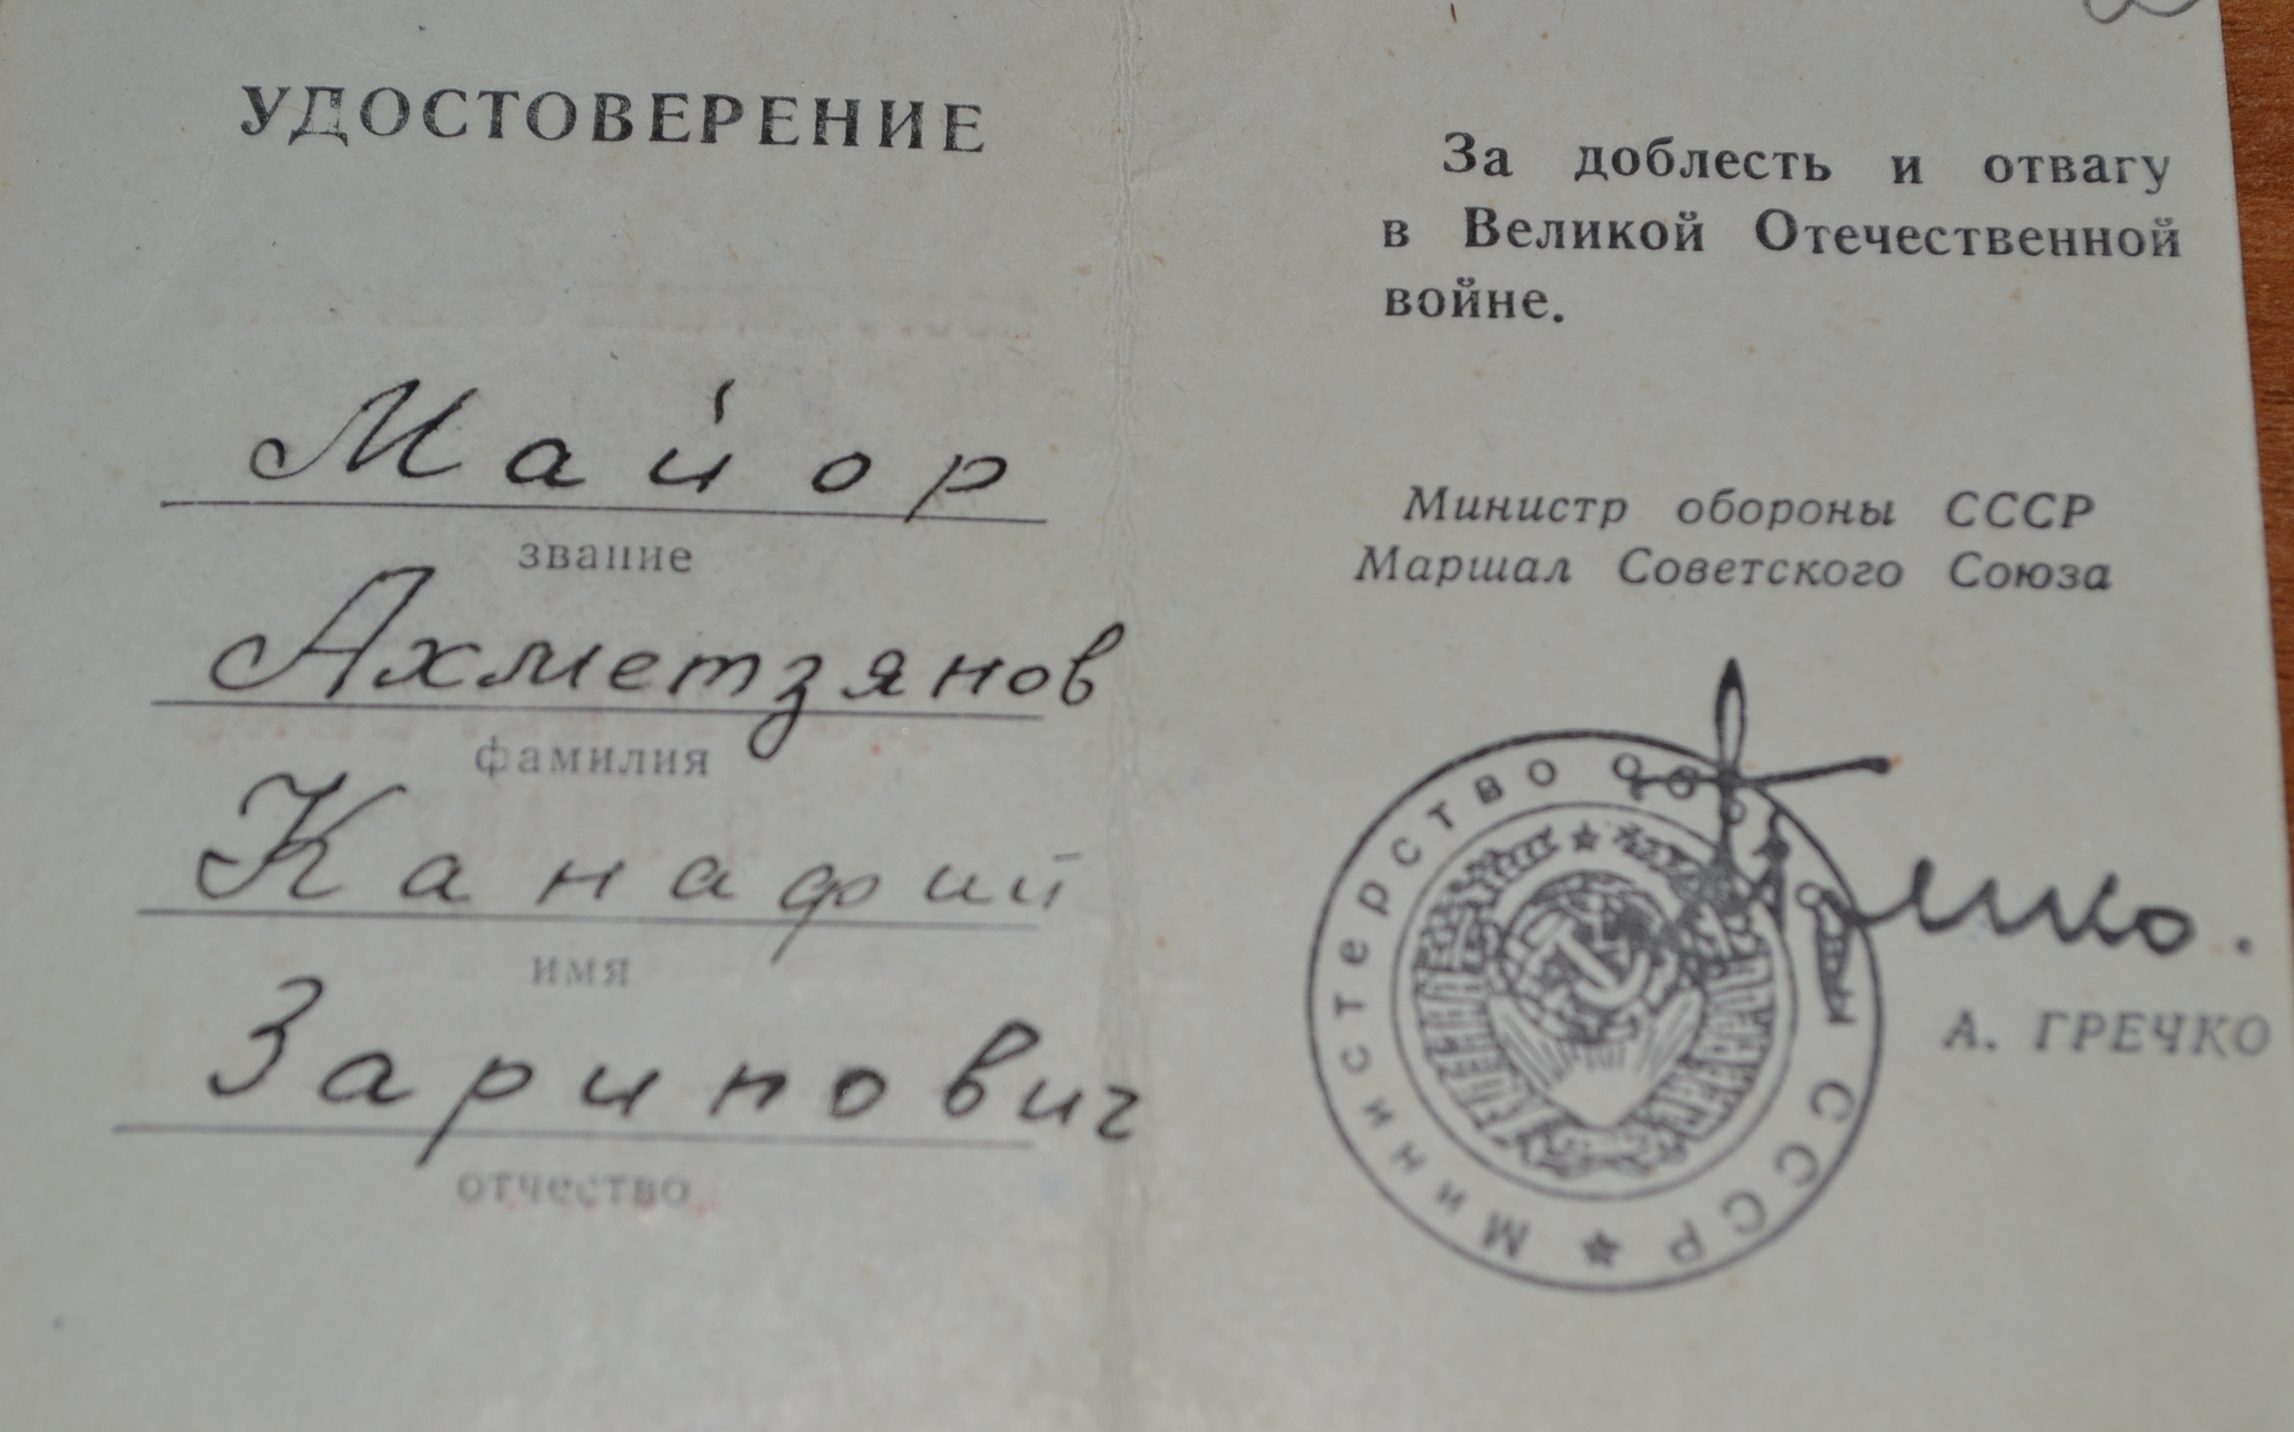 УДОСТОВЕРЕНИЕ
Майор
звание
Ахметзянов
фамилия
Канафий
имя
Зарипович
отчество
За доблесть и отвагу
в Великой Отечественной
войне.
Министр обороны СССР
Маршал Советского Союза
Министерство обороны СССР
А. ГРЕЧКО